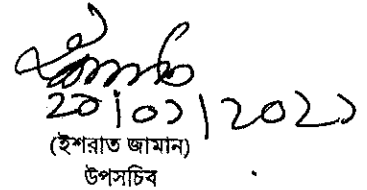 ২০|০১|২০২১
(ইশরাত জামান)
উপসচিব